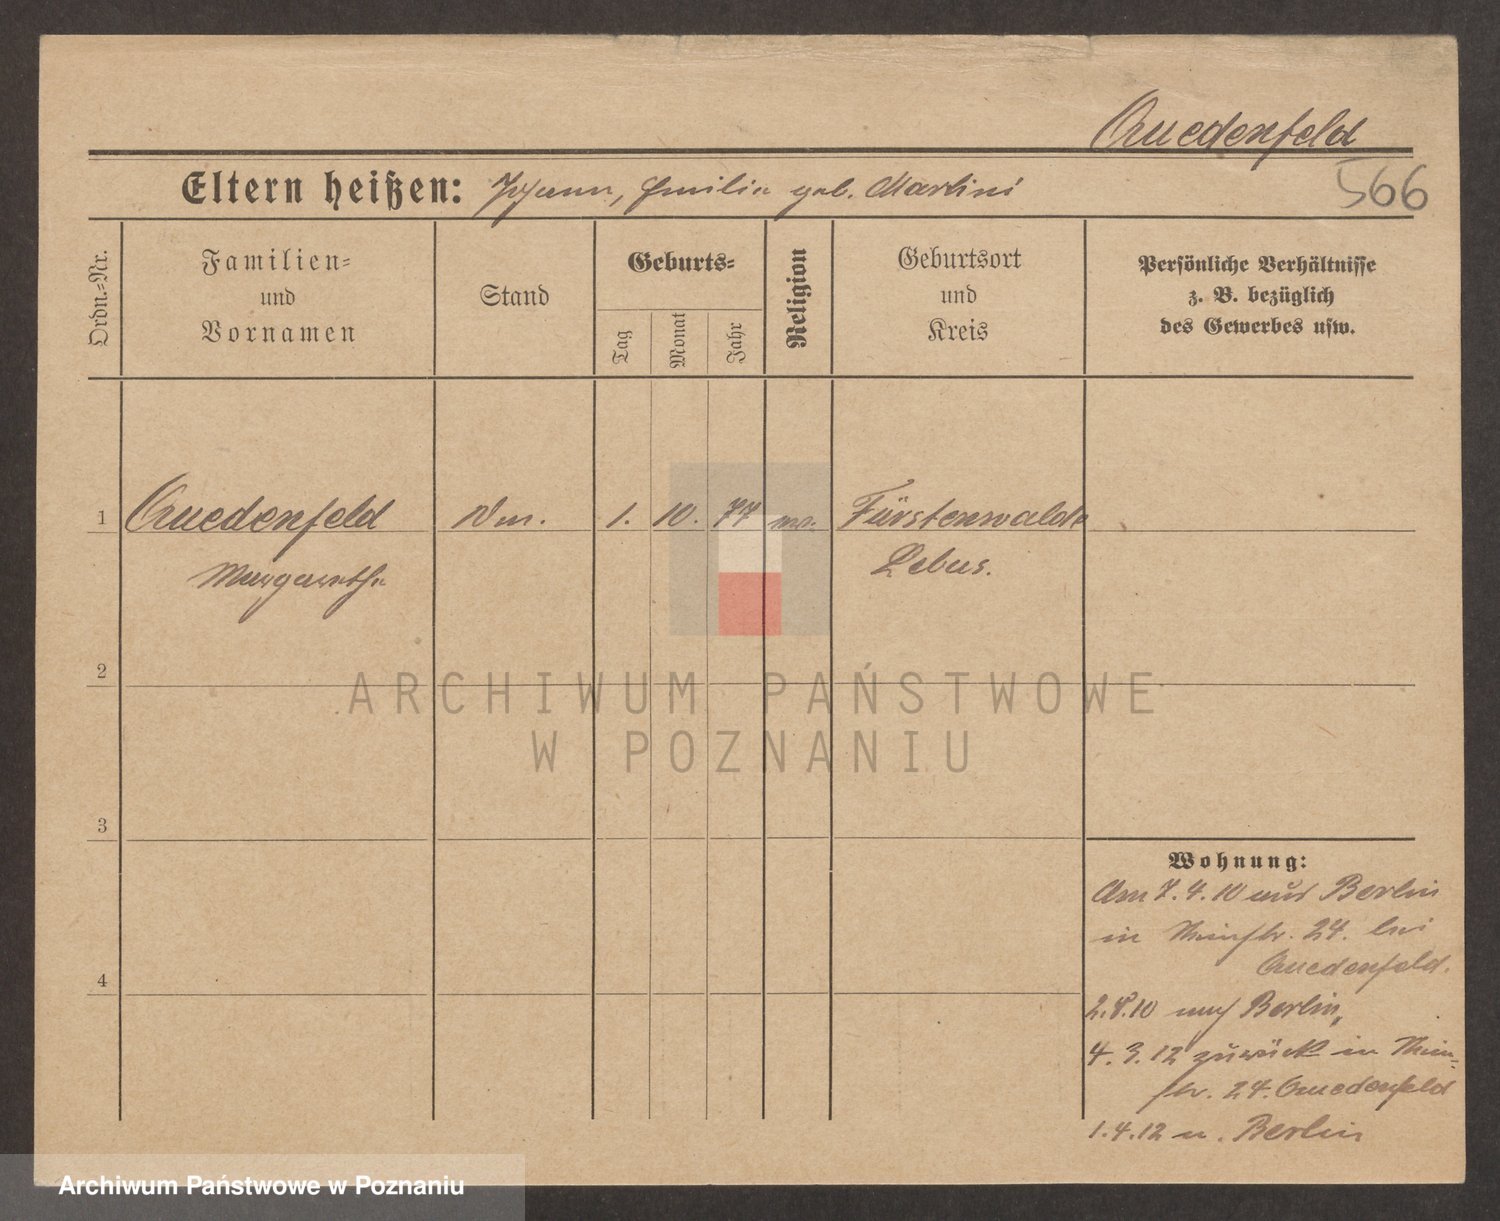 Quedenfeld
566
Eltern heißen: Johann, Emilie geb. Martini
Ordn.=Nr.
Familien=
und
Vornamen
Stand
Geburts=
Tag
Monat
Jahr
Religion
Geburtsort
und
Kreis
Persönliche Verhältnisse
z. B. bezüglich
des Gewerbes usw.
1 Quedenfeld 1. 10. 77 Fürstenwalde
Margarethe Lebus.
2
3
4
Wohnung:
Am 7. 4. 10 aus Berlin
in 24. bei
Quedenfeld.
2.8.10 nach Berlin
4. 3. 12 zurück in
str. 24. Quedenfeld
1.4.12 n. Berlin
ARCHIWUM PAŃSTWOWE
W POZNANIU
Archiwum Państwowe w Poznaniu